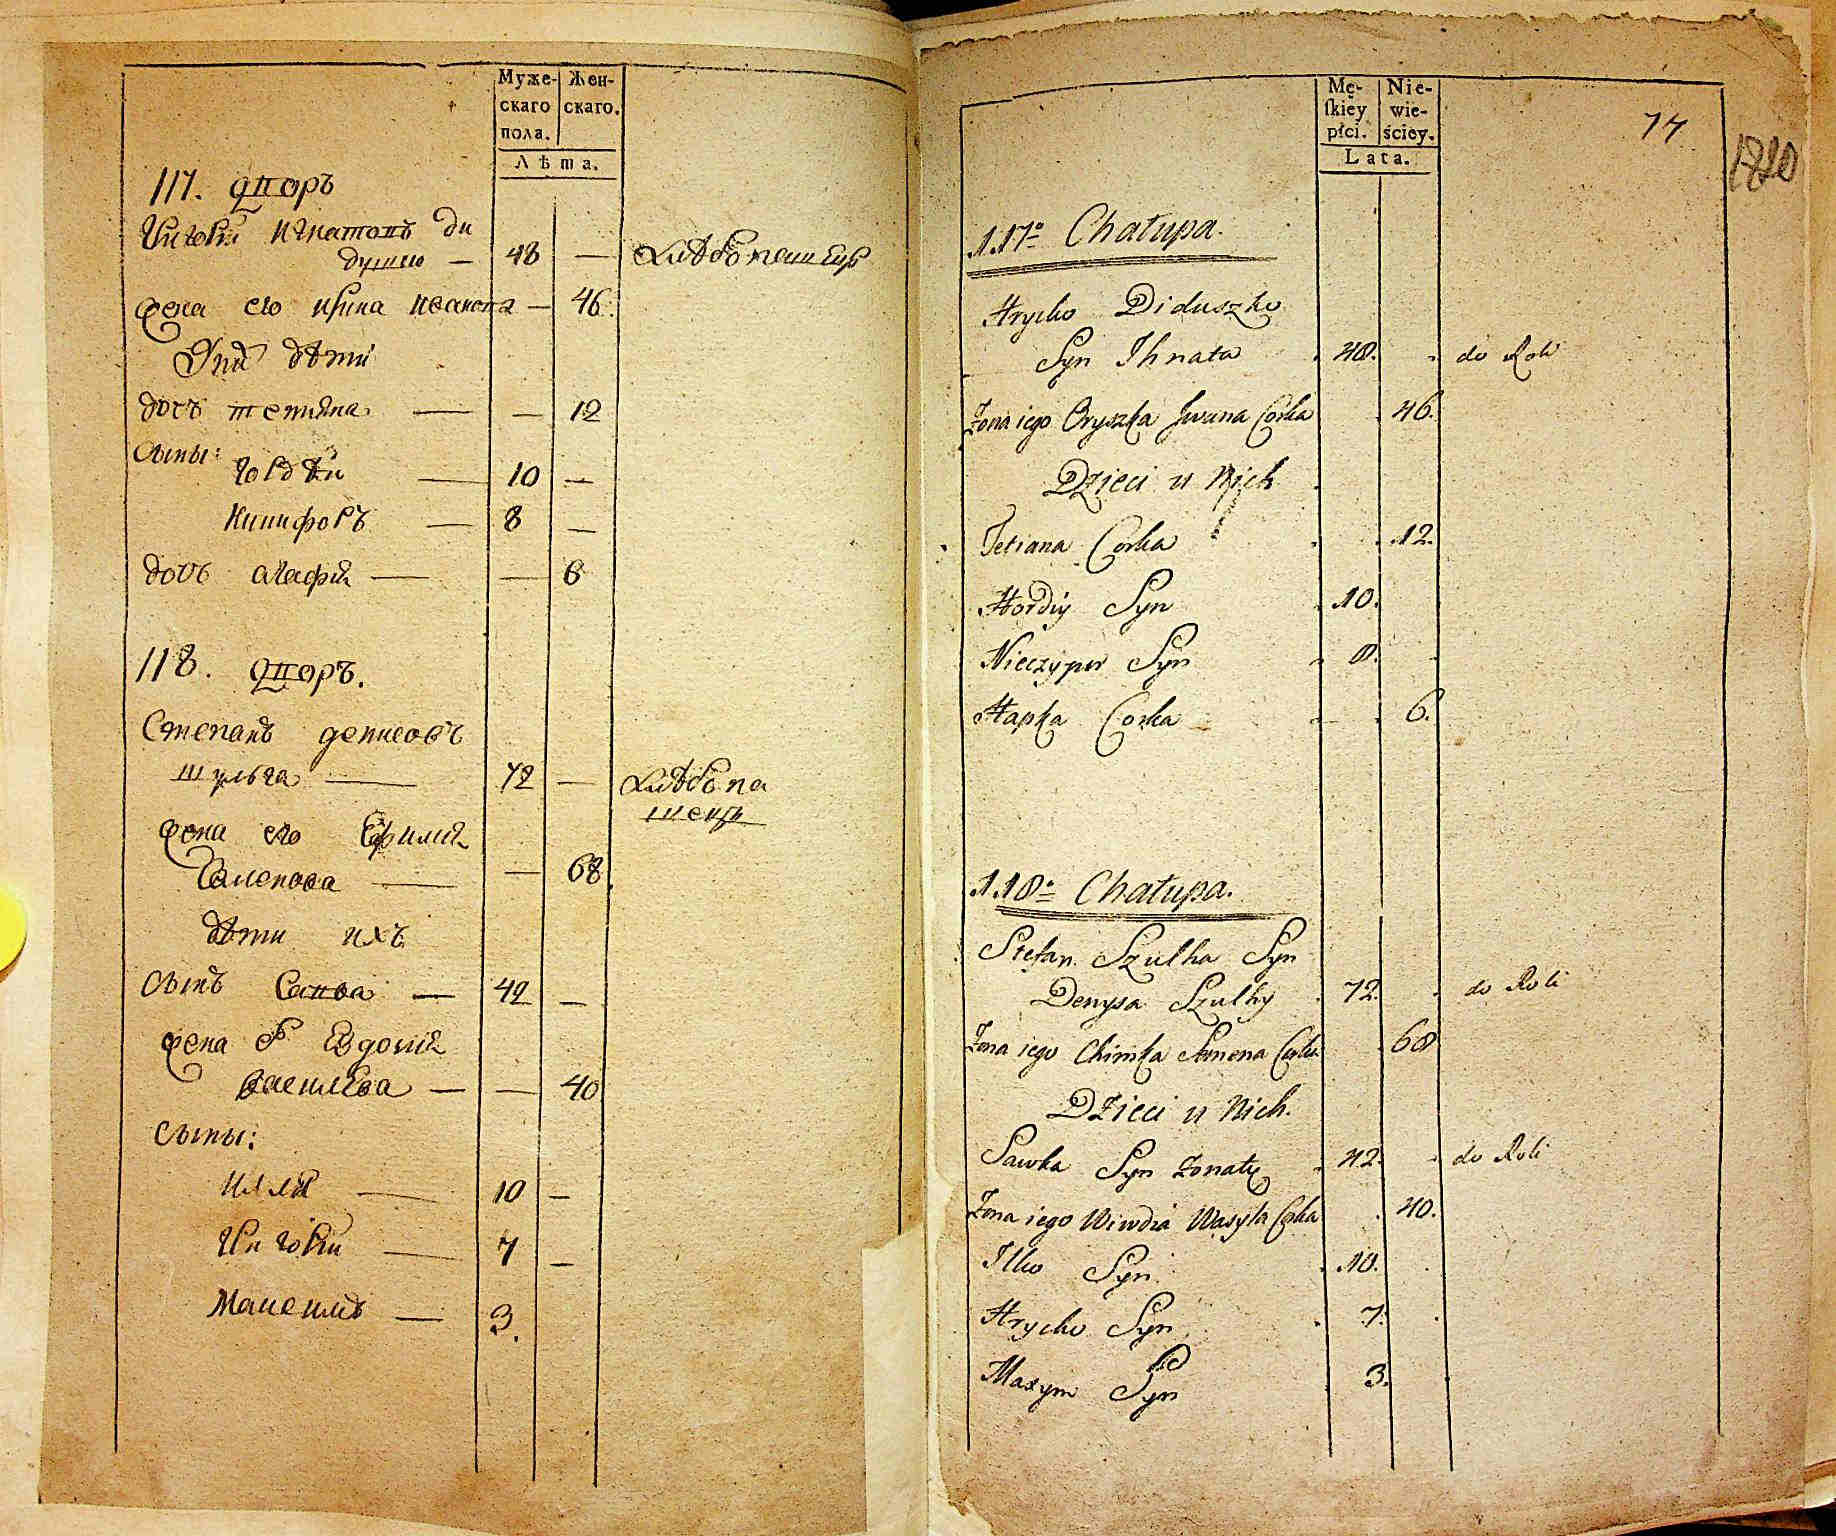 Муже-
скаго
пола.
Жен-
скаго.
Лѣта.
117. дворъ
Григорій Игнатовъ Ди
душко — 48 — хлѣбопашецъ
жена его Ирина Иванова — 46.
У них дѣти
дочь Тетяна — — 12
сыны:
Гордѣй — 10 —
Никифоръ — 8 —
дочь Агафія — — 6
118. дворъ.
Степанъ Денисовъ
Шульга — 72 — хлѣбопа
шецъ
жена его Ефимія
Семенова — — 68.
дѣти ихъ
сынъ Савва — 42 —
жена Евдокія
Василева — — 40
сыны:
Илля — 10 —
Григорій — 7 —
Максимъ — 3.
Mę-
skiey
płci.
Nie-
wie-
ściey.
Lata.
77
1820
117º Chałupa.
Hrycko Diduszko
Syn Ihnata 48. do Roli
Żona iego Oryszka Jwana Corka 46.
Dzieci u Nich
Tetiana Corka 12.
Hordiy Syn 10.
Nieczypor Syn 8.
Hapka Corka 6.
118º Chałupa.
Stefan Szulha Syn
Denysa Szulhy 72. do Roli
Żona iego Chimka Semena Corka 68
Dzieci u Nich.
Sawka Syn żonaty 42. do Roli
Żona iego Wiwdia Wasyla Corka 40.
Ilko Syn 10.
Hrycko Syn 7.
Maxym Syn 3.